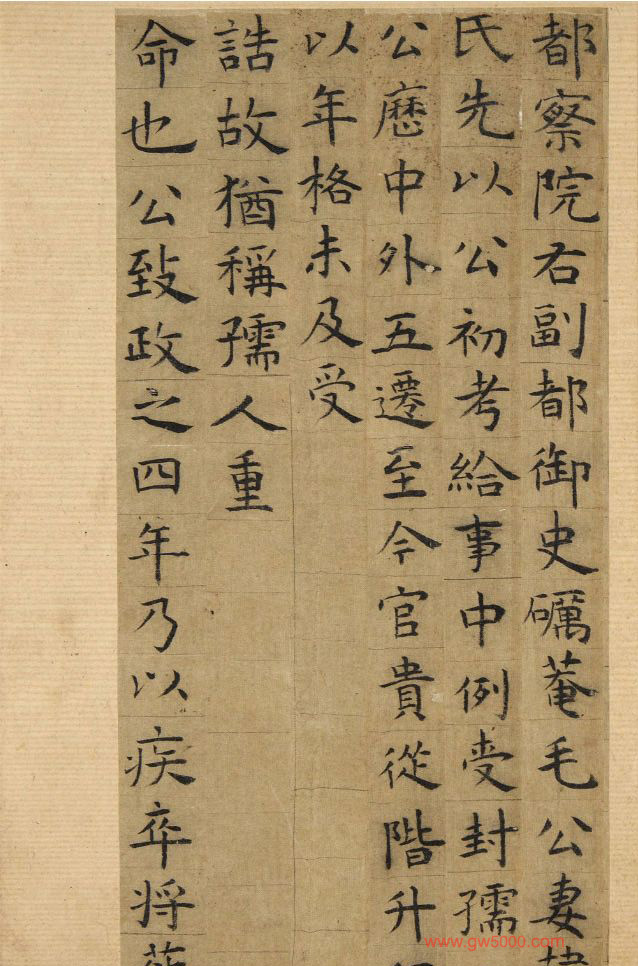 都察院右副都御史礪菴毛公妻
氏先以公初考給事中例受封孺
公歷中外五遷至今官貴從階升
以年格未及受
誥故猶稱孺人重
命也公致政之四年乃以疾卒將
www.gw5000.com